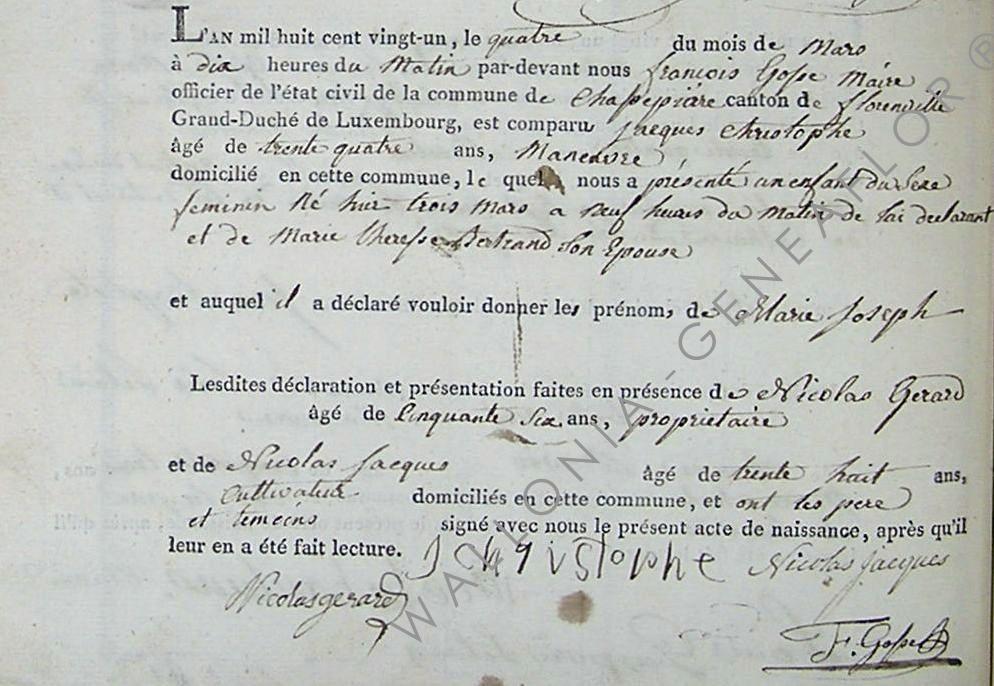 L'AN mil huit cent vingt-un, le quatre du mois de Mars
à dix heures du Matin par-devant nous françois Gosse Maire
officier de l'état civil de la commune de Chassepière canton de florenville
Grand-Duché de Luxembourg, est comparu jacques christophe
âgé de trente quatre ans, Maneuvre
domicilié en cette commune, le quel nous a présenté un enfant du Sexe
feminin Né hier trois Mars a neuf heures du Matin de lui declarant
et de Marie therese Bertrand Son Epouse
et auquel il a déclaré vouloir donner les prénoms de Marie joseph
Lesdites déclaration et présentation faites en présence de Nicolas Gerard
âgé de Cinquante Six ans, proprietaire
et de Nicolas jacques âgé de trente huit ans,
Cultivateur domiciliés en cette commune, et ont les pere
et temoins signé avec nous le présent acte de naissance, après qu'il
leur en a été fait lecture. J christophe Nicolas jacques
Nicolasgerard
F. Gosse
WALLONIA-GENEAFLOR ®